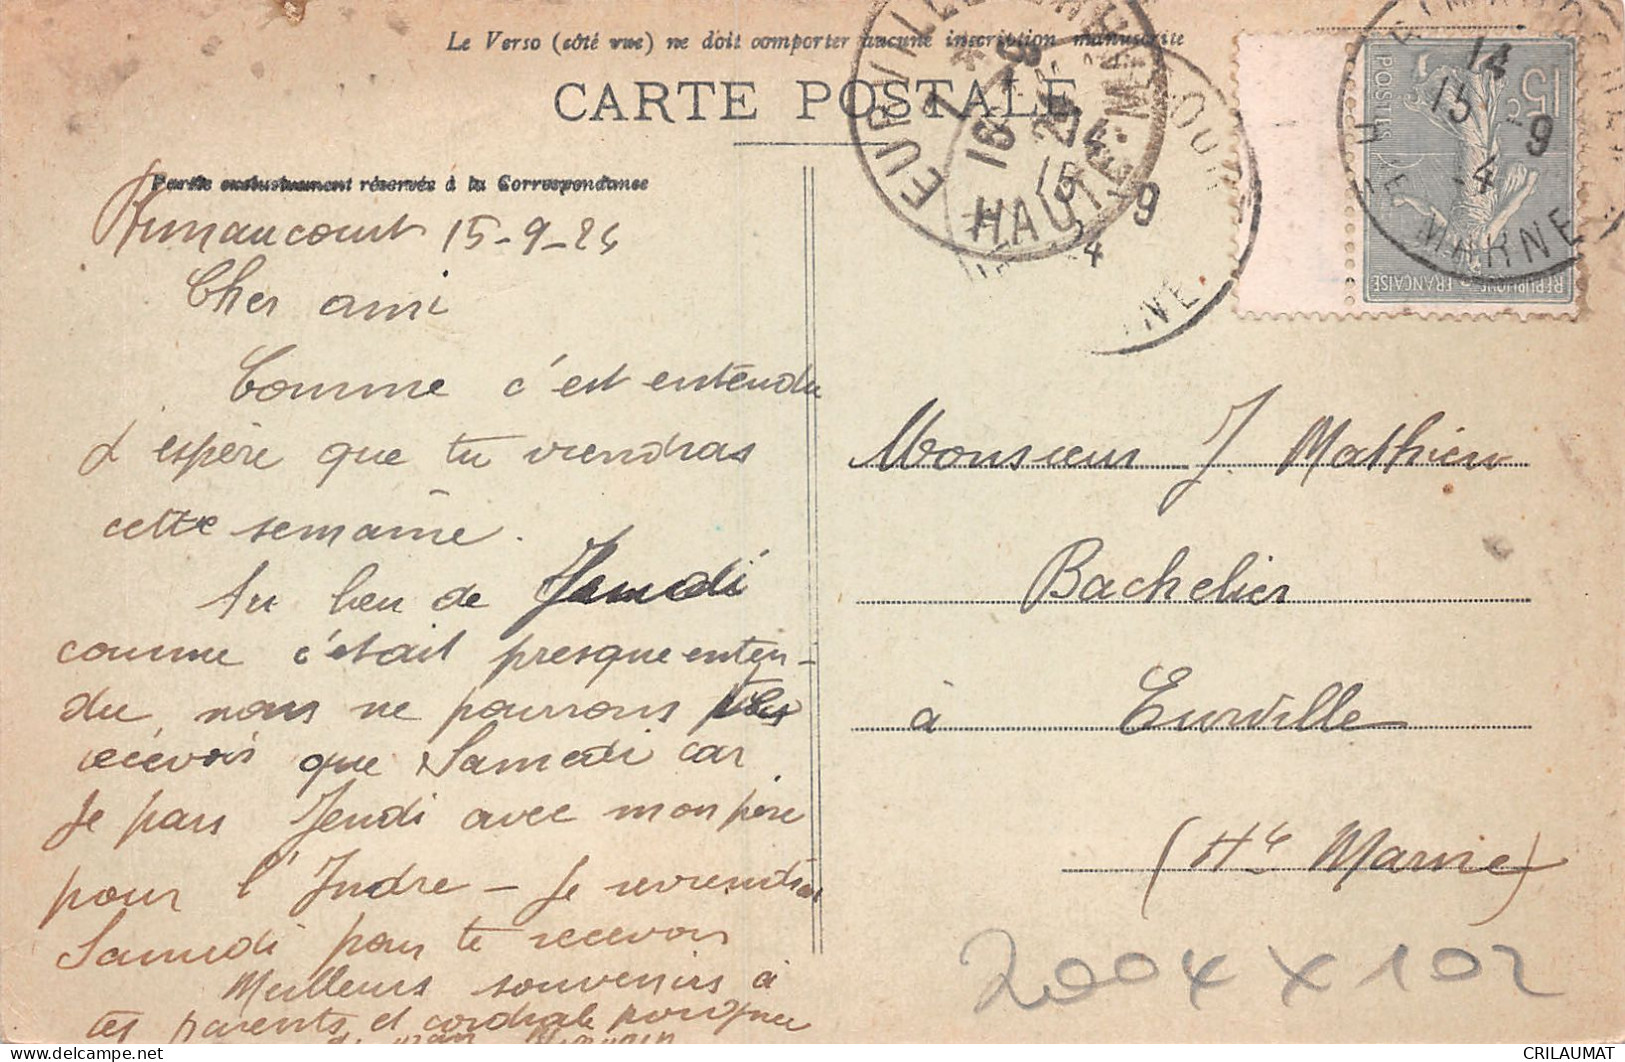 Le Verso (côté vue) ne doit comporter aucune inscription manuscrite
CARTE POSTALE
Partie exclusivement réservée à la Correspondance
Rimaucourt 15-9-24
Cher ami
Comme c'est entendu
J'espère que tu viendras
cette semaine.
Au lieu de Jeudi
comme c'était presque enten-
du nous ne pourrons te
recevoir que Samedi car
je pars Jeudi avec mon père
pour l'Indre - Je reviendrai
Samedi pour te recevoir
Meilleurs souvenirs à
tes parents et cordiale poignée
de main
Monsieur J. Mathieu
Bachelier
à Eurville
(Hte Marne)
2004 X 102
EURVILLE HAUTE-MARNE
16 -9
24
15 -9
24
14
15 -9
24
HTE MARNE
15c
POSTES
REPUBLIQUE FRANÇAISE
CRILAUMAT